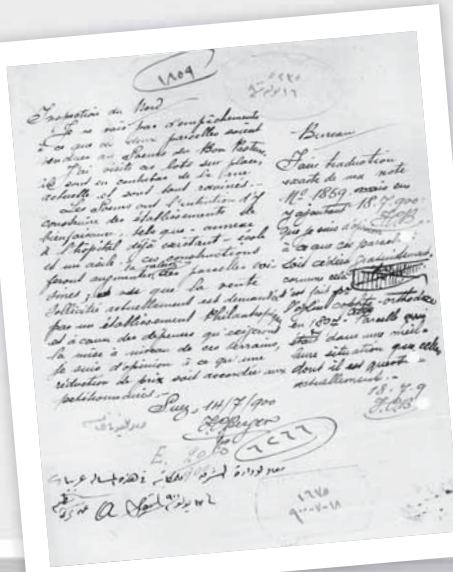 ١٨٥٩
Inspection du Nord
Je ne vois pas d'empêchements
à ce que ces deux parcelles soient
vendues au Soeurs du Bon Pasteur,
J'ai visité les lots sur place,
ils sont en contrebas de la rue
actuelle et sont tout ravinés. -
Les Soeurs ont l'intention d'y
construire des établissements de
bienfaisance, tels que - annexe
à l'hôpital déjà existant - école
et un asile - ces constructions
feront augmenter les parcelles voi-
sines, vu que la vente
sollicitée actuellement est demandée
par un établissement Philanthropique
et à cause des dépenses qu'exigeront
la mise à niveau de ces terrains,
Je suis d'opinion à ce qu'une
réduction de prix soit accordée aux
pétitionnaires. -
Suez, 14/7/900
- Bureau
Faire traduction
exacte de ma note
Nº 1859, mais en
y ajoutant 18.7.900
que je suis d'opinion
à ce que ces parcelles
soit cédées gratuitement
comme cela
a été fait pour
l'église cophte-orthodoxe
en 189
était dans une meil-
leure situation que celle
dont il est question
actuellement. -
18.7.9
٢٦٢٢
E. 20
١٦٧٥
٩٠٠-٧-١٨